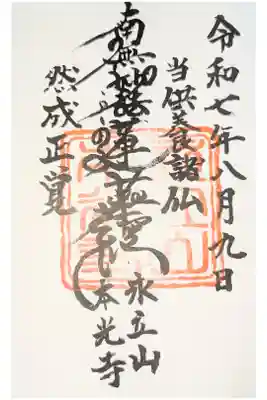 令和七年八月九日
当供養諸仏
永立山
南無妙法蓮華経
本光寺
然成正覚